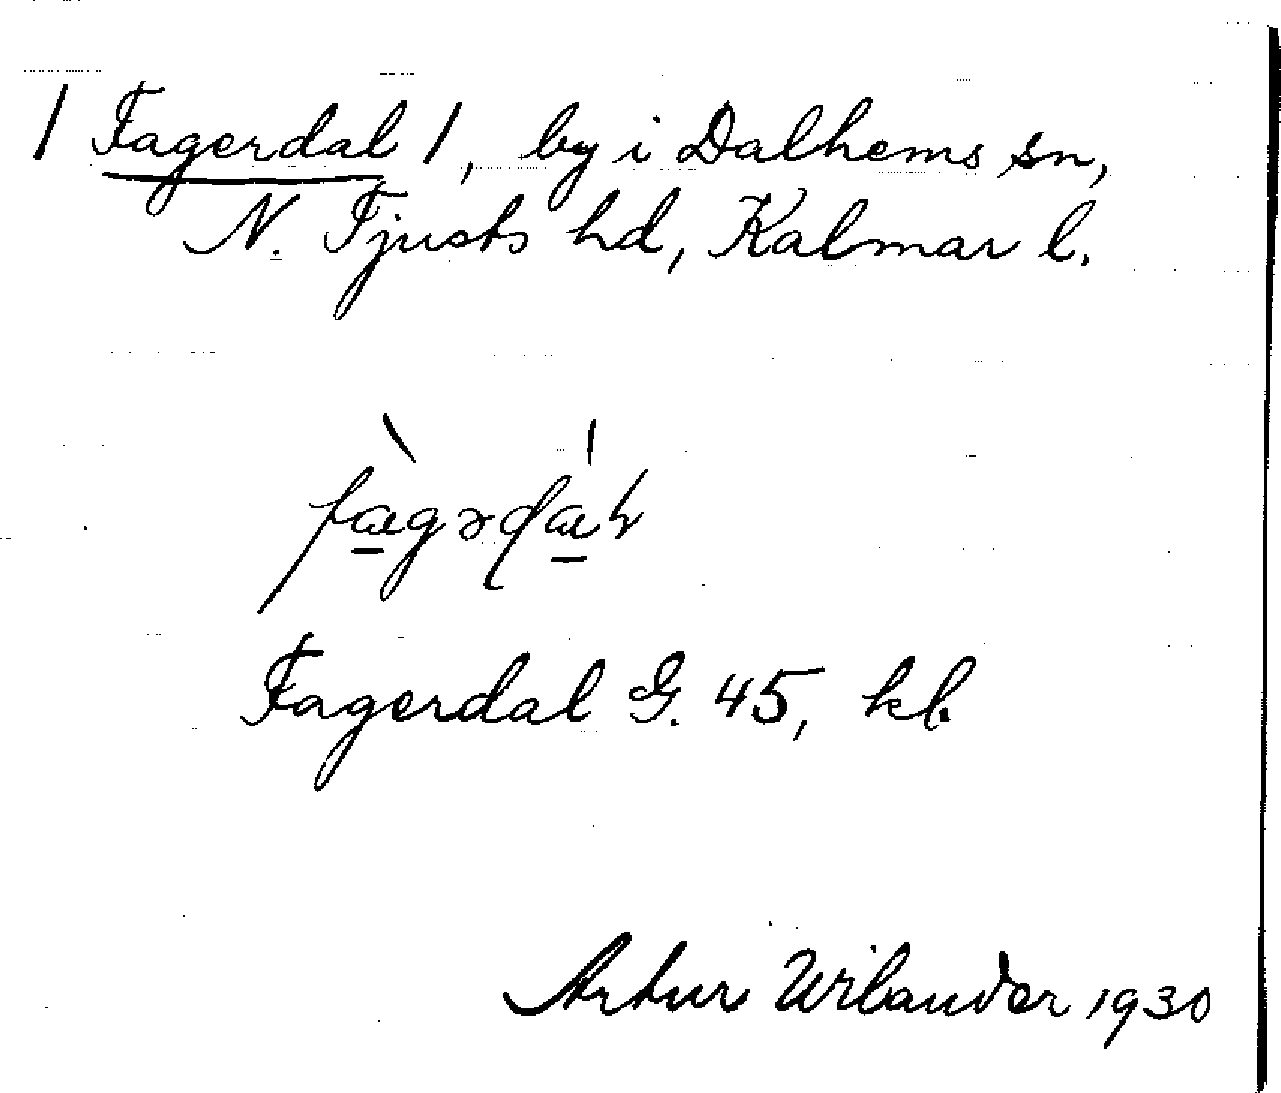 / Fagerdal /, by i Dalhems sn,
N. Tjusts hd, Kalmar l.
Fagerdal G. 45, kl.
Artur Wilander 1930